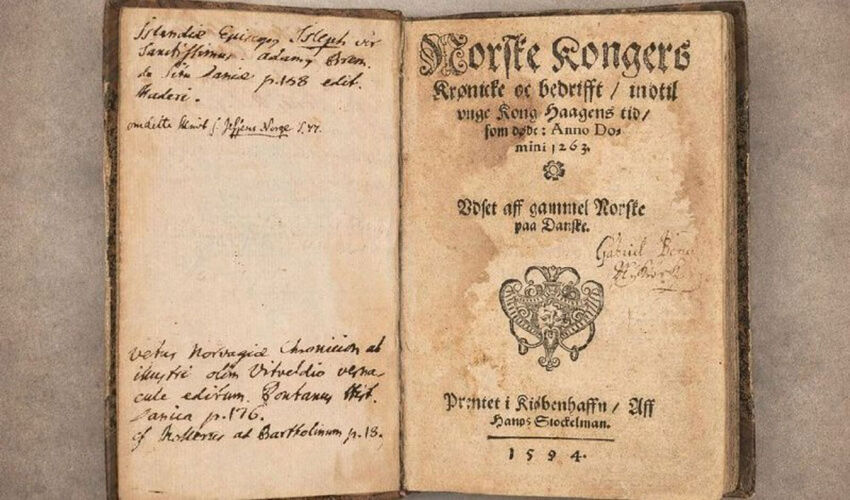 Islandiæ Episcop. Isleph vir
Sanctissimus. adamg Brem.
de Situ Daniæ p.158 edit.
Maderi.
Norske Kongers
Krønicke oc bedrifft / indtil
vnge Kong Haagens tid /
som døde: Anno Do-
mini 1263.
Vdset aff gammel Norske
paa Danske.
Gabriel
Prentet i Kiøbenhaffn / Aff
Hanns Stockelman.
1594.
vetus Norvagiæ Chronicon ab
illustri olim Vitveldio verna-
cule editum. Pontanus Hist.
Danica p.176.
cf Mollerus ad Bartholinum p.18.